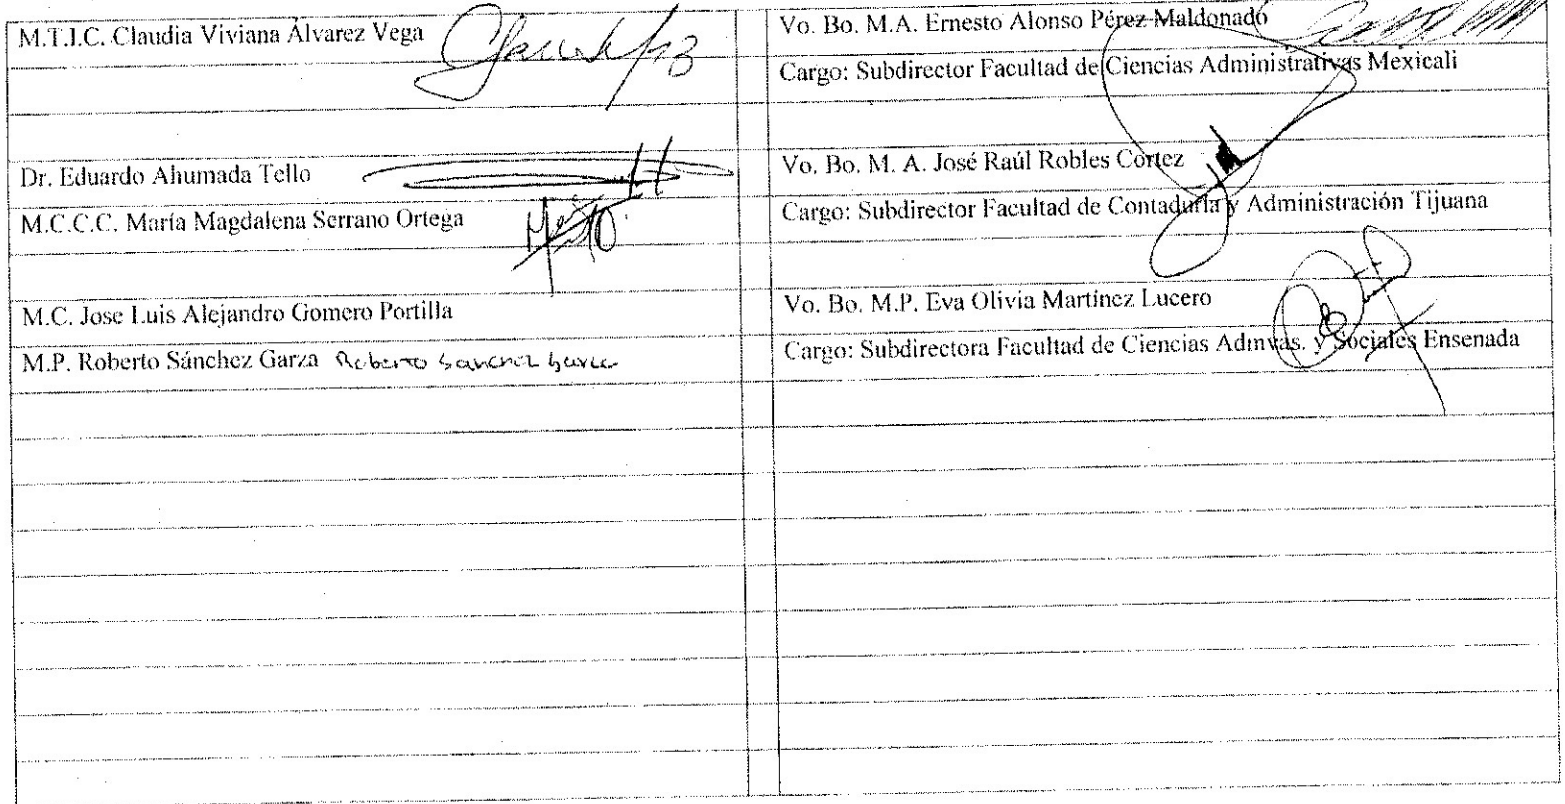 M.T.I.C. Claudia Viviana Álvarez Vega
Dr. Eduardo Ahumada Tello
M.C.C.C. María Magdalena Serrano Ortega
M.C. Jose Luis Alejandro Gomero Portilla
M.P. Roberto Sánchez Garza Roberto Sanchez Garza
Vo. Bo. M.A. Ernesto Alonso Pérez Maldonado
Cargo: Subdirector Facultad de Ciencias Administrativas Mexicali
Vo. Bo. M. A. José Raúl Robles Cortez
Cargo: Subdirector Facultad de Contaduría y Administración Tijuana
Vo. Bo. M.P. Eva Olivia Martínez Lucero
Cargo: Subdirectora Facultad de Ciencias Admvas. y Sociales Ensenada